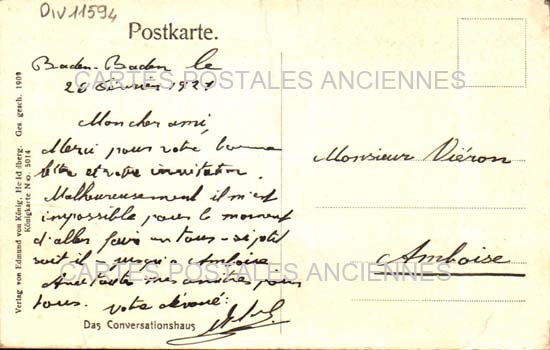 DIV 11594
Postkarte.
Baden-Baden le
20 février 1927
CARTES POSTALES ANCIENNES
Mon cher ami,
Merci pour votre bonne
lettre et votre invitation.
Malheureusement il m'est
impossible pour le moment
d'aller faire un tour - si petit
soit il - jusqu'à Amboise
CARTES POSTALES ANCIENNES
mes amitiés pour
tous. Votre dévoué:
Das Conversationshaus
Monsieur Viéron
Amboise
Verlag von Edmund von König, Heidelberg. Ges gesch. 1909
Königkarte No. 5014